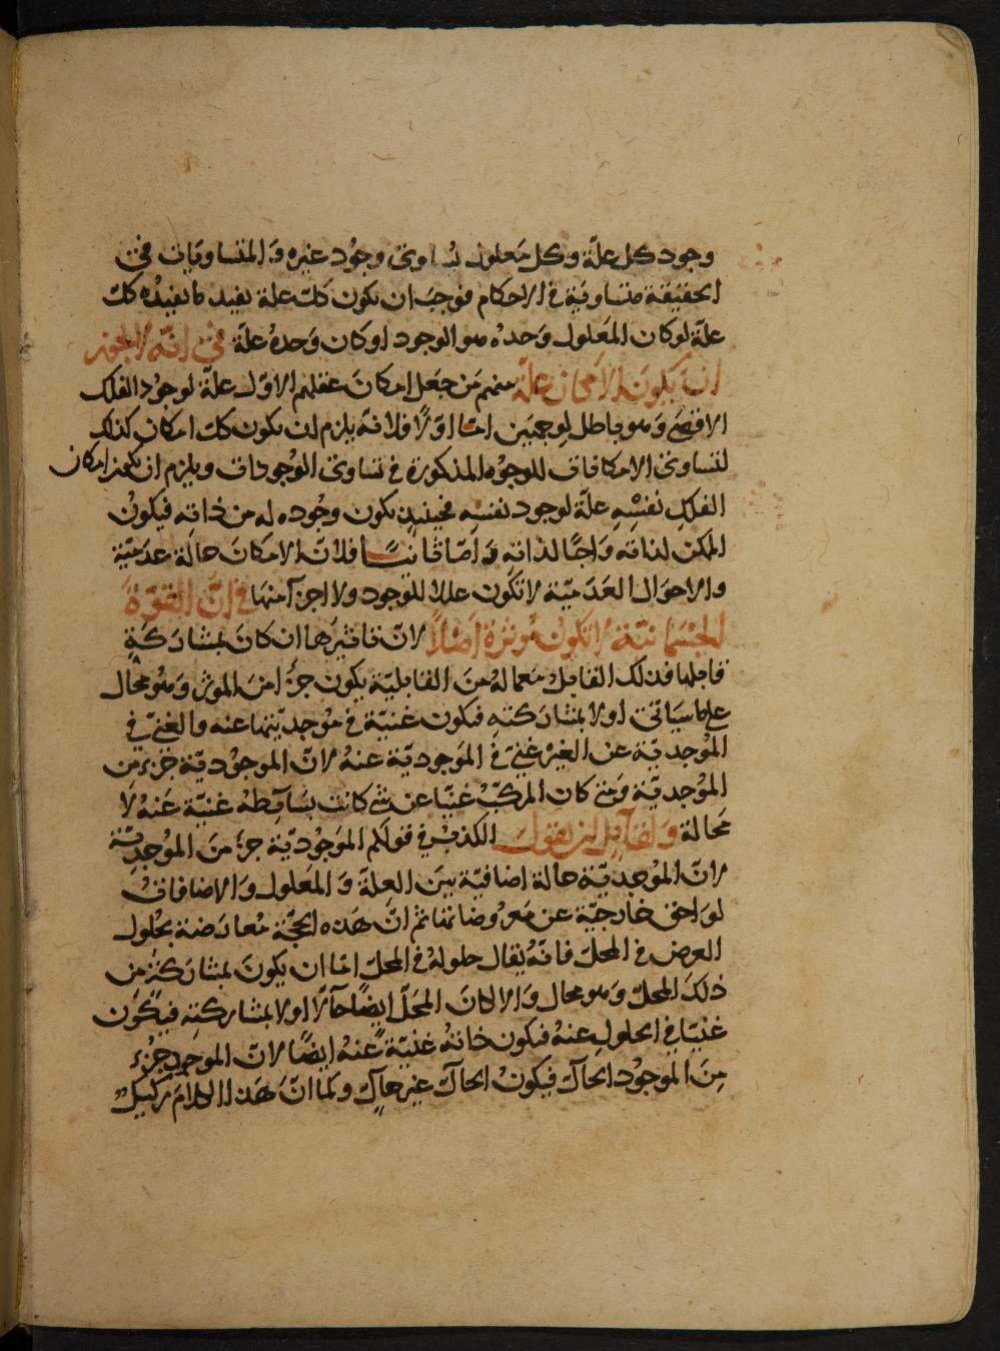 وجود كل علة وكل معلول يساوى وجود غيره والمتساويان فى
الحقيقة متساوية فى الاحكام فوجب ان يكون كل علة يفيد ما يفيده كل
علة لو كان المعلول وحده هو الوجود او كان وحده علة فى انه لا يجوز
ان يكون الامكان علة منهم من جعل امكان عقلهم الاول علة لوجود الفلك
الاقصى وهو باطل لوجهين اما اولا فلانه يلزم ان يكون كل امكان كذلك
لتساوى الامكانات للوجوه المذكورة فى تساوى الوجودات ويلزم ان يكون امكان
الفلك نفسه علة لوجود نفسه فحينئذ يكون وجوده له من ذاته فيكون
الممكن لذاته واجبا لذاته واما ثانيا فلان الامكان حالة عدمية
والاحوال العدمية لا تكون عللا للوجود ولا اجزآ منها فى ان القوة
الجسمانية لا تكون موثرة اصلا لان تاثيرها ان كان بمشاركة
قابلها فذلك القابل معما له من القابلية يكون جزءا من الموثر وهو محال
على ما سياتى او لا بمشاركته فيكون غنية فى موجديتها عنه والغنى فى
الموجدية عن الغير غنى فى الموجودية عنه لان الموجودية جزء من
الموجدية ومتى كان المركب غنيا عن شئ كانت بسآئطه غنية عنه لا
محالة ولقآئل ان يقول الكذب فى قولكم الموجودية جزء من الموجدية
لان الموجدية حالة اضافية بين العلة والمعلول والاضافات
لواحق خارجية عن معروضاتها ثم ان هذه الحجة معارضة بحلول
العرض فى المحل فانه يقال حلوله فى المحل اما ان يكون بمشاركة من
ذلك المحل وهو محال والا لكان المحل ايضا حآلا او لا بمشاركته فيكون
غنيا فى الحلول عنه فيكون ذاته غنية عنه ايضا لان الموجود جزء
من الموجود الحآل فيكون الحآل غير حآل وكما ان هذا الكلام ركيك